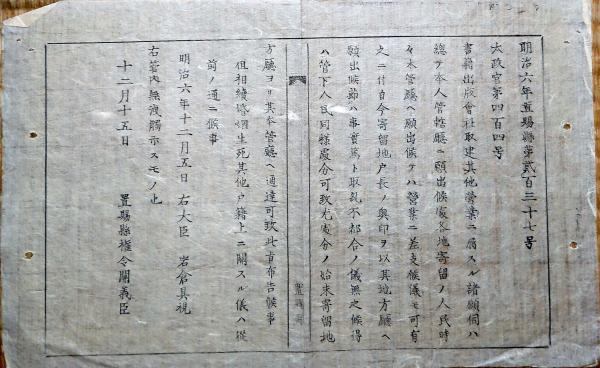 明治六年置賜縣第貳百三十七号
太政官第四百四号
書籍出版會社取建其他營業ニ屬スル諸願伺ハ
總テ本人管轄廳ニ願出候處各地寄留ノ人民時
々本管廳ヘ願出候テハ營業ニ差支候儀モ可有
之ニ付自今寄留地戸長ノ奥印ヲ以其地方廳ヘ
願出候節ハ事實篤ト取糺不都合ノ儀無之候得
ハ管下人民同様處分可致尤處分ノ始末寄留地
方廳ヨリ其本管廳ヘ通達可致此旨布告候事
但相續婚姻生死其他戸籍上ニ關スル儀ハ從
前ノ通ニ候事
明治六年十二月五日 右大臣 岩倉具視
右管内無洩觸示スモノ也
十二月十五日 置賜縣權令關義臣
置賜縣